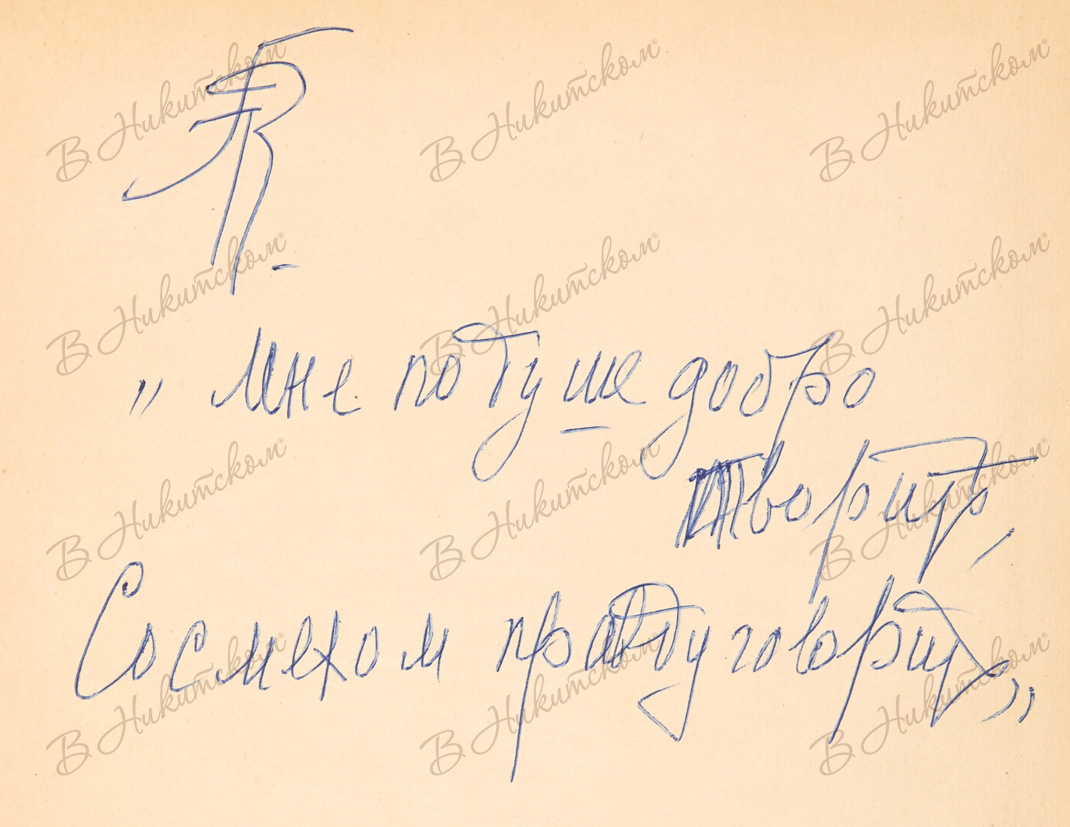 В Никитском В Никитском В Никитском
В Никитском В Никитском В Никитском
„ Мне по душе добро
творить,
В Никитском В Никитском В Никитском
Со смехом правду говорить„
В Никитском В Никитском В Никитском